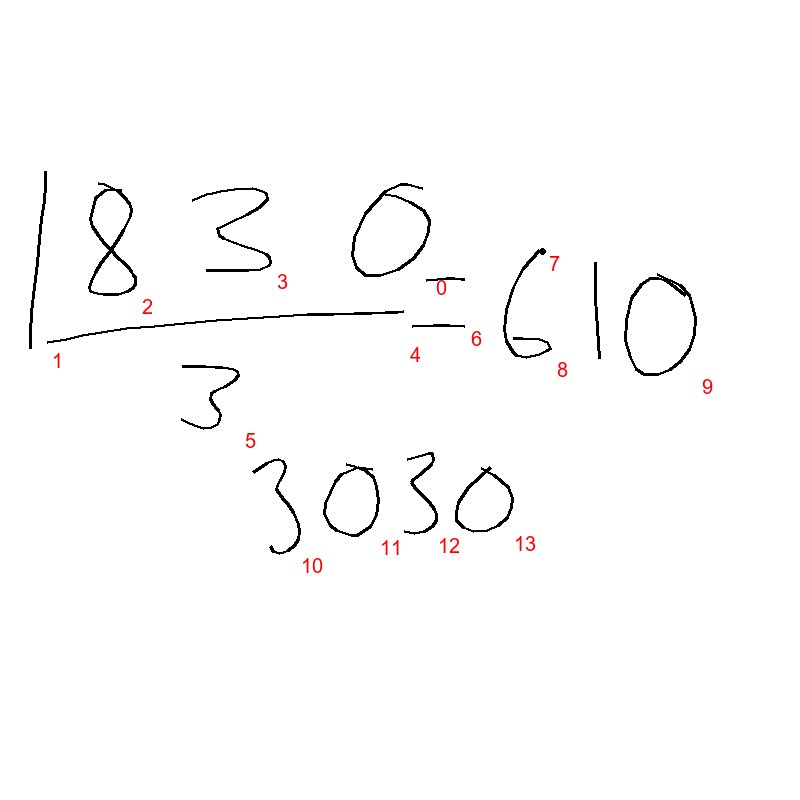 1830
3
= 610
3030
0
1
2
3
4
5
6
7
8
9
10
11
12
13